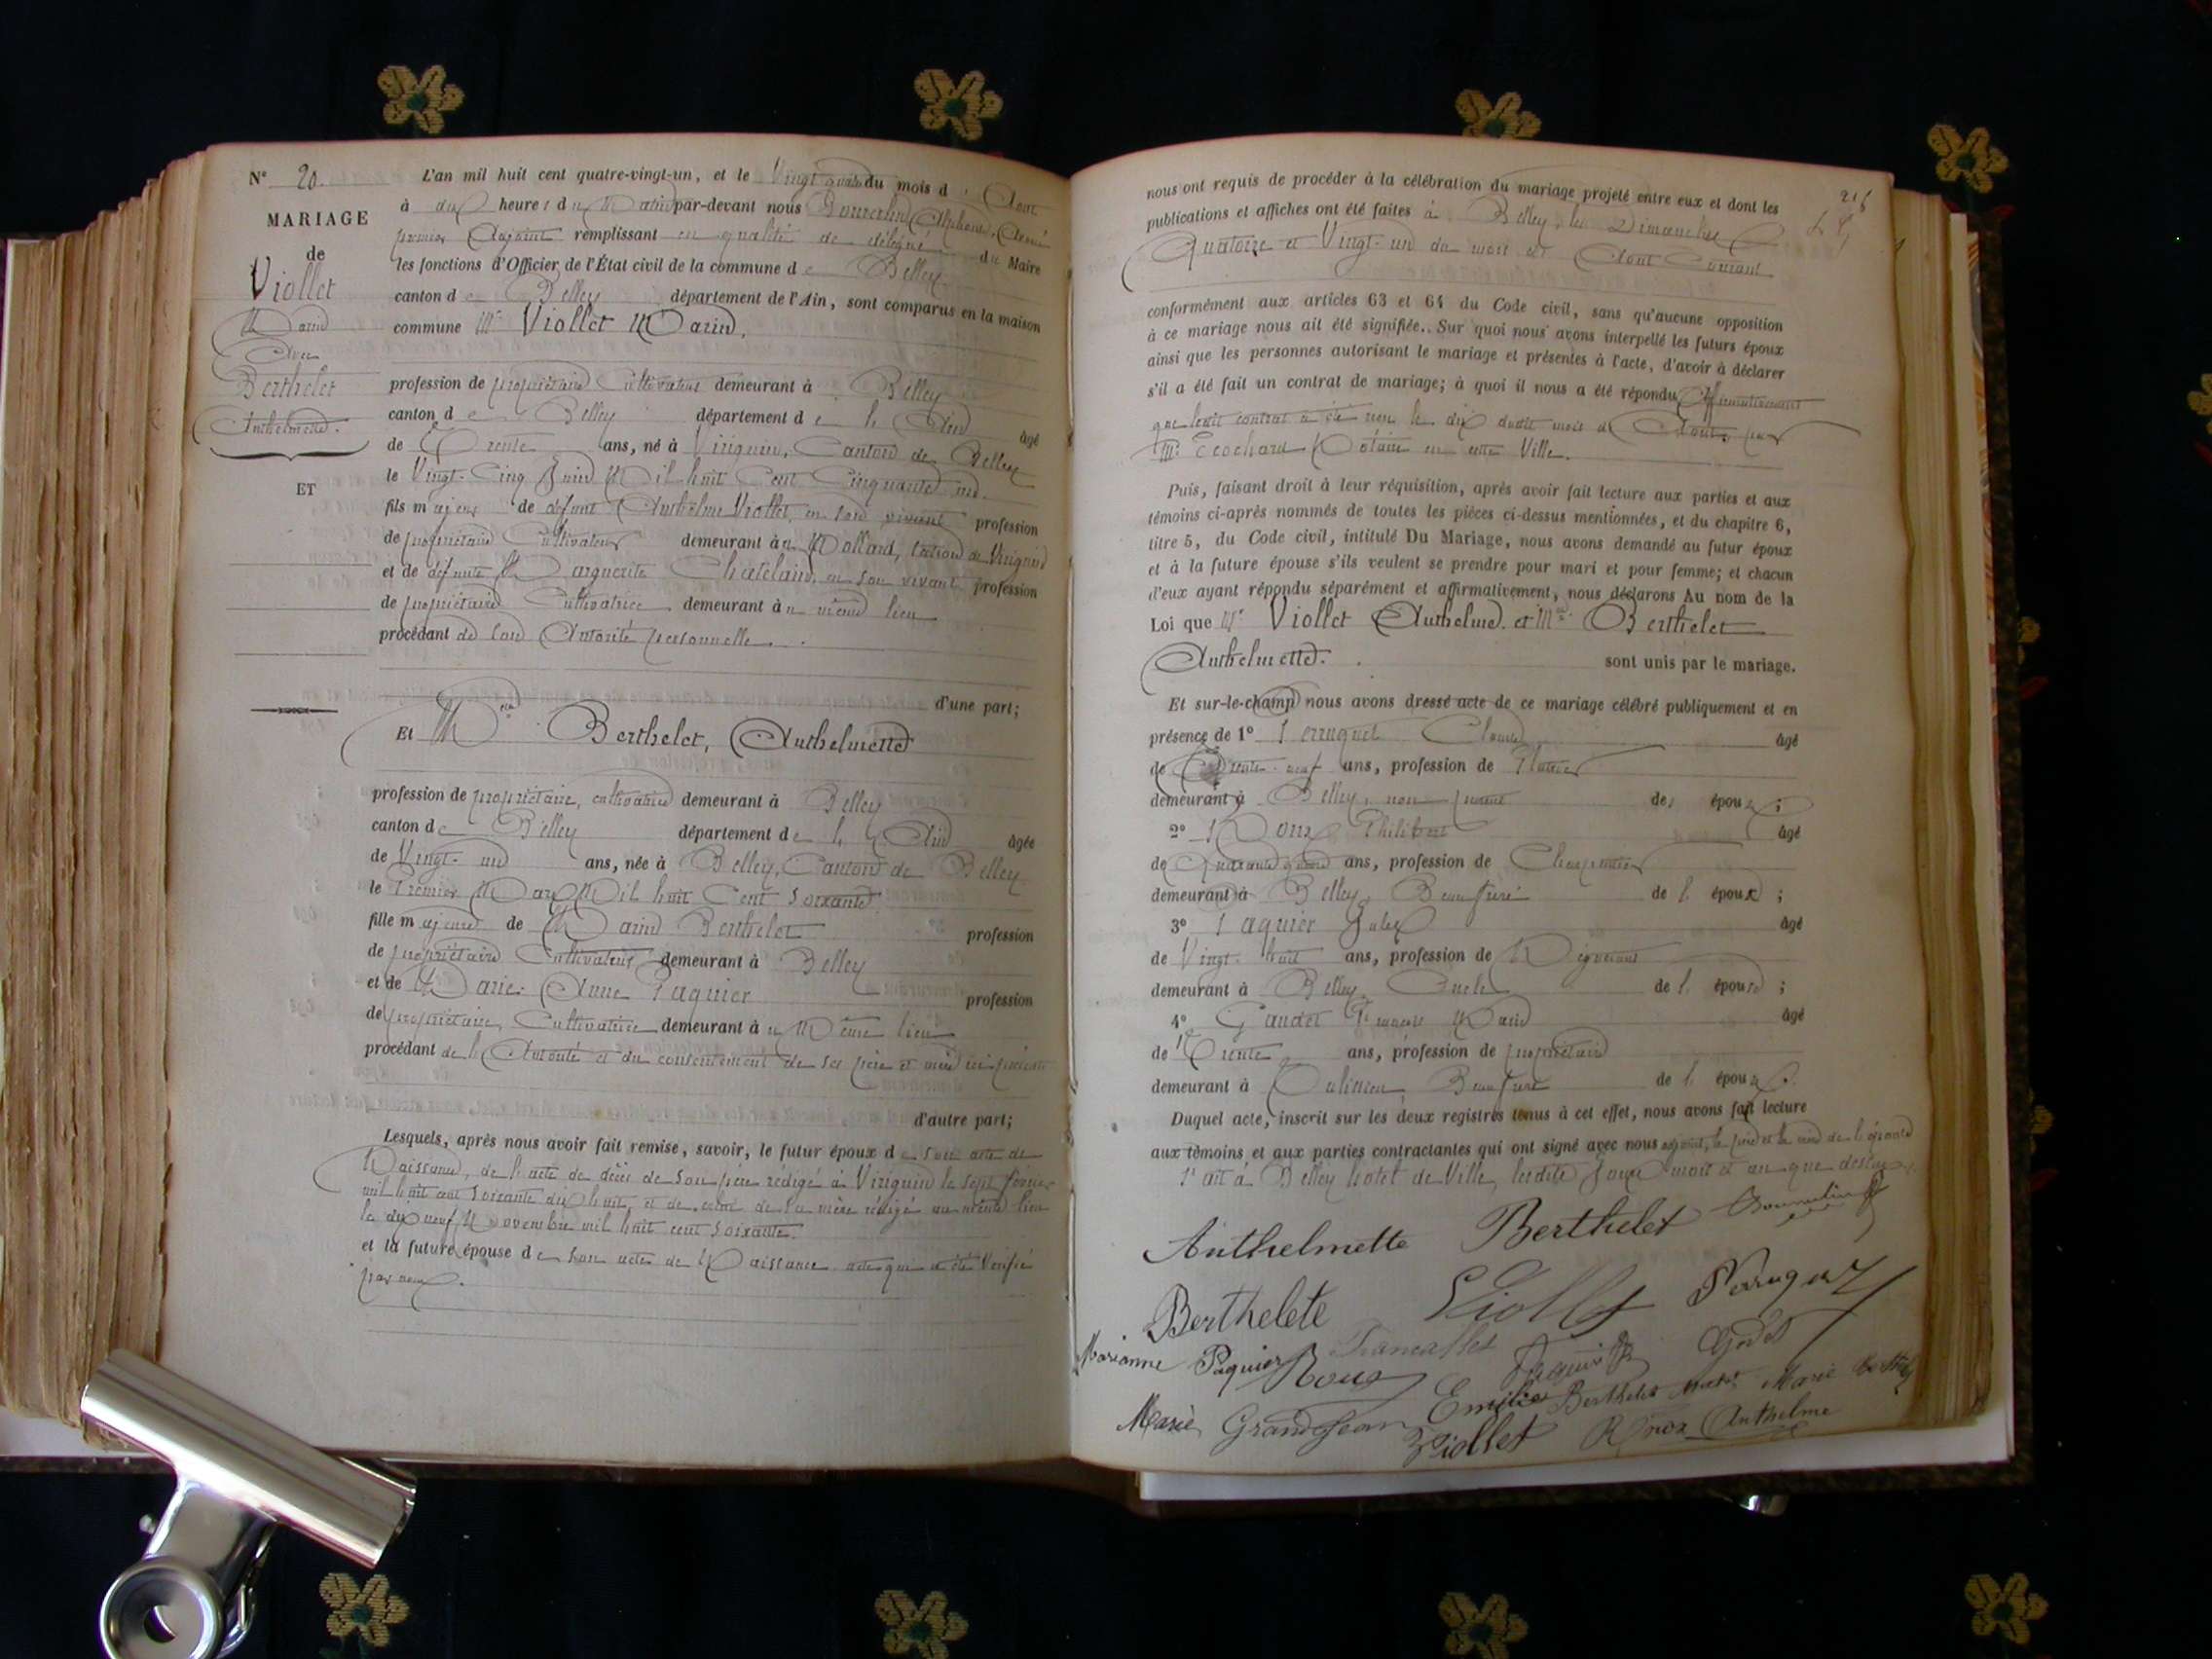 N° 20.
MARIAGE
de
Viollet
Marin
Avec
Berthelet
Anthelmette.
ET
L'an mil huit cent quatre-vingt-un, et le Vingt quatre du mois d'Aout
à dix heures du Matin par-devant nous Alphonse,
premier Adjoint remplissant en qualité de délégué du Maire
les fonctions d'Officier de l'État civil de la commune de Belley
canton de Belley département de l'Ain, sont comparus en la maison
commune Mr Viollet Marin,
profession de propriétaire Cultivateur demeurant à Belley
canton de Belley département de l'Ain âgé
de Trente ans, né à Virignin, Canton de Belley
le Vingt-Cinq Juin Mil huit Cent Cinquante un.
fils majeur de défunt Anthelme Viollet, en son vivant profession
de propriétaire Cultivateur demeurant à Mollard, Virignin
et de défunte Marguerite Chatelain, en son vivant profession
de propriétaire Cultivatrice demeurant au même lieu
procédant de son Autorité personnelle.
d'une part;
Et Melle Berthelet, Anthelmette
profession de propriétaire, cultivatrice demeurant à Belley
canton de Belley département de l'Ain âgée
de Vingt-un ans, née à Belley, Canton de Belley
le Premier Mars Mil huit Cent Soixante.
fille majeure de Marin Berthelet profession
de propriétaire Cultivateur demeurant à Belley
et de Marie-Anne Paquier profession
de propriétaire, Cultivatrice demeurant au Même lieu
procédant de l'Autorité et du consentement de ses père et mère ici présents
d'autre part;
Lesquels, après nous avoir fait remise, savoir, le futur époux de son acte de
Naissance, de l'acte de décès de son père rédigé à Virignin le sept février
mil huit cent soixante dix huit, et de celui de sa mère rédigé au même lieu
le dix neuf Novembre mil huit cent soixante.
et la future épouse de son acte de Naissance, acte qui a été Vérifié
par nous.
nous ont requis de procéder à la célébration du mariage projeté entre eux et dont les
publications et affiches ont été faites à Belley, les Dimanches
Quatorze et Vingt-un du mois d'Aout Courant
conformément aux articles 63 et 64 du Code civil, sans qu'aucune opposition
à ce mariage nous ait été signifiée.. Sur quoi nous avons interpellé les futurs époux
ainsi que les personnes autorisant le mariage et présentes à l'acte, d'avoir à déclarer
s'il a été fait un contrat de mariage; à quoi il nous a été répondu Affirmativement
que ledit contrat a été reçu le dix dudit mois d'Aout, par
Me Ecochard Notaire en cette Ville.
Puis, faisant droit à leur réquisition, après avoir fait lecture aux parties et aux
témoins ci-après nommés de toutes les pièces ci-dessus mentionnées, et du chapitre 6,
titre 5, du Code civil, intitulé Du Mariage, nous avons demandé au futur époux
et à la future épouse s'ils veulent se prendre pour mari et pour femme; et chacun
d'eux ayant répondu séparément et affirmativement, nous déclarons Au nom de la
Loi que Mr Viollet Anthelme et Melle Berthelet
Anthelmette. sont unis par le mariage.
Et sur-le-champ nous avons dressé acte de ce mariage célébré publiquement et en
présence de 1° Claude âgé
de Trente-neuf ans, profession de Platrier
demeurant à Belley, non parent des époux;
2° Roux Philibert âgé
de Quarante ans, profession de Charpentier
demeurant à Belley, Beau frère de l'époux;
3° Paquier Jules âgé
de Vingt-huit ans, profession de Négociant
demeurant à Belley, Oncle de l'épouse;
4° Gaudet François Marie âgé
de Trente ans, profession de propriétaire
demeurant à Beau frère de l'époux.
Duquel acte, inscrit sur les deux registres tenus à cet effet, nous avons fait lecture
aux témoins et aux parties contractantes qui ont signé avec nous adjoint, le père et la mère de l'épouse
Fait à Belley hotel de Ville, lesdits jour mois et an que dessus.
Anthelmette Berthelet
Berthelete Viollet
Marianne Paquier Roux
Marie Grandjean Emilie Berthelet Marie
Viollet Roux Anthelme